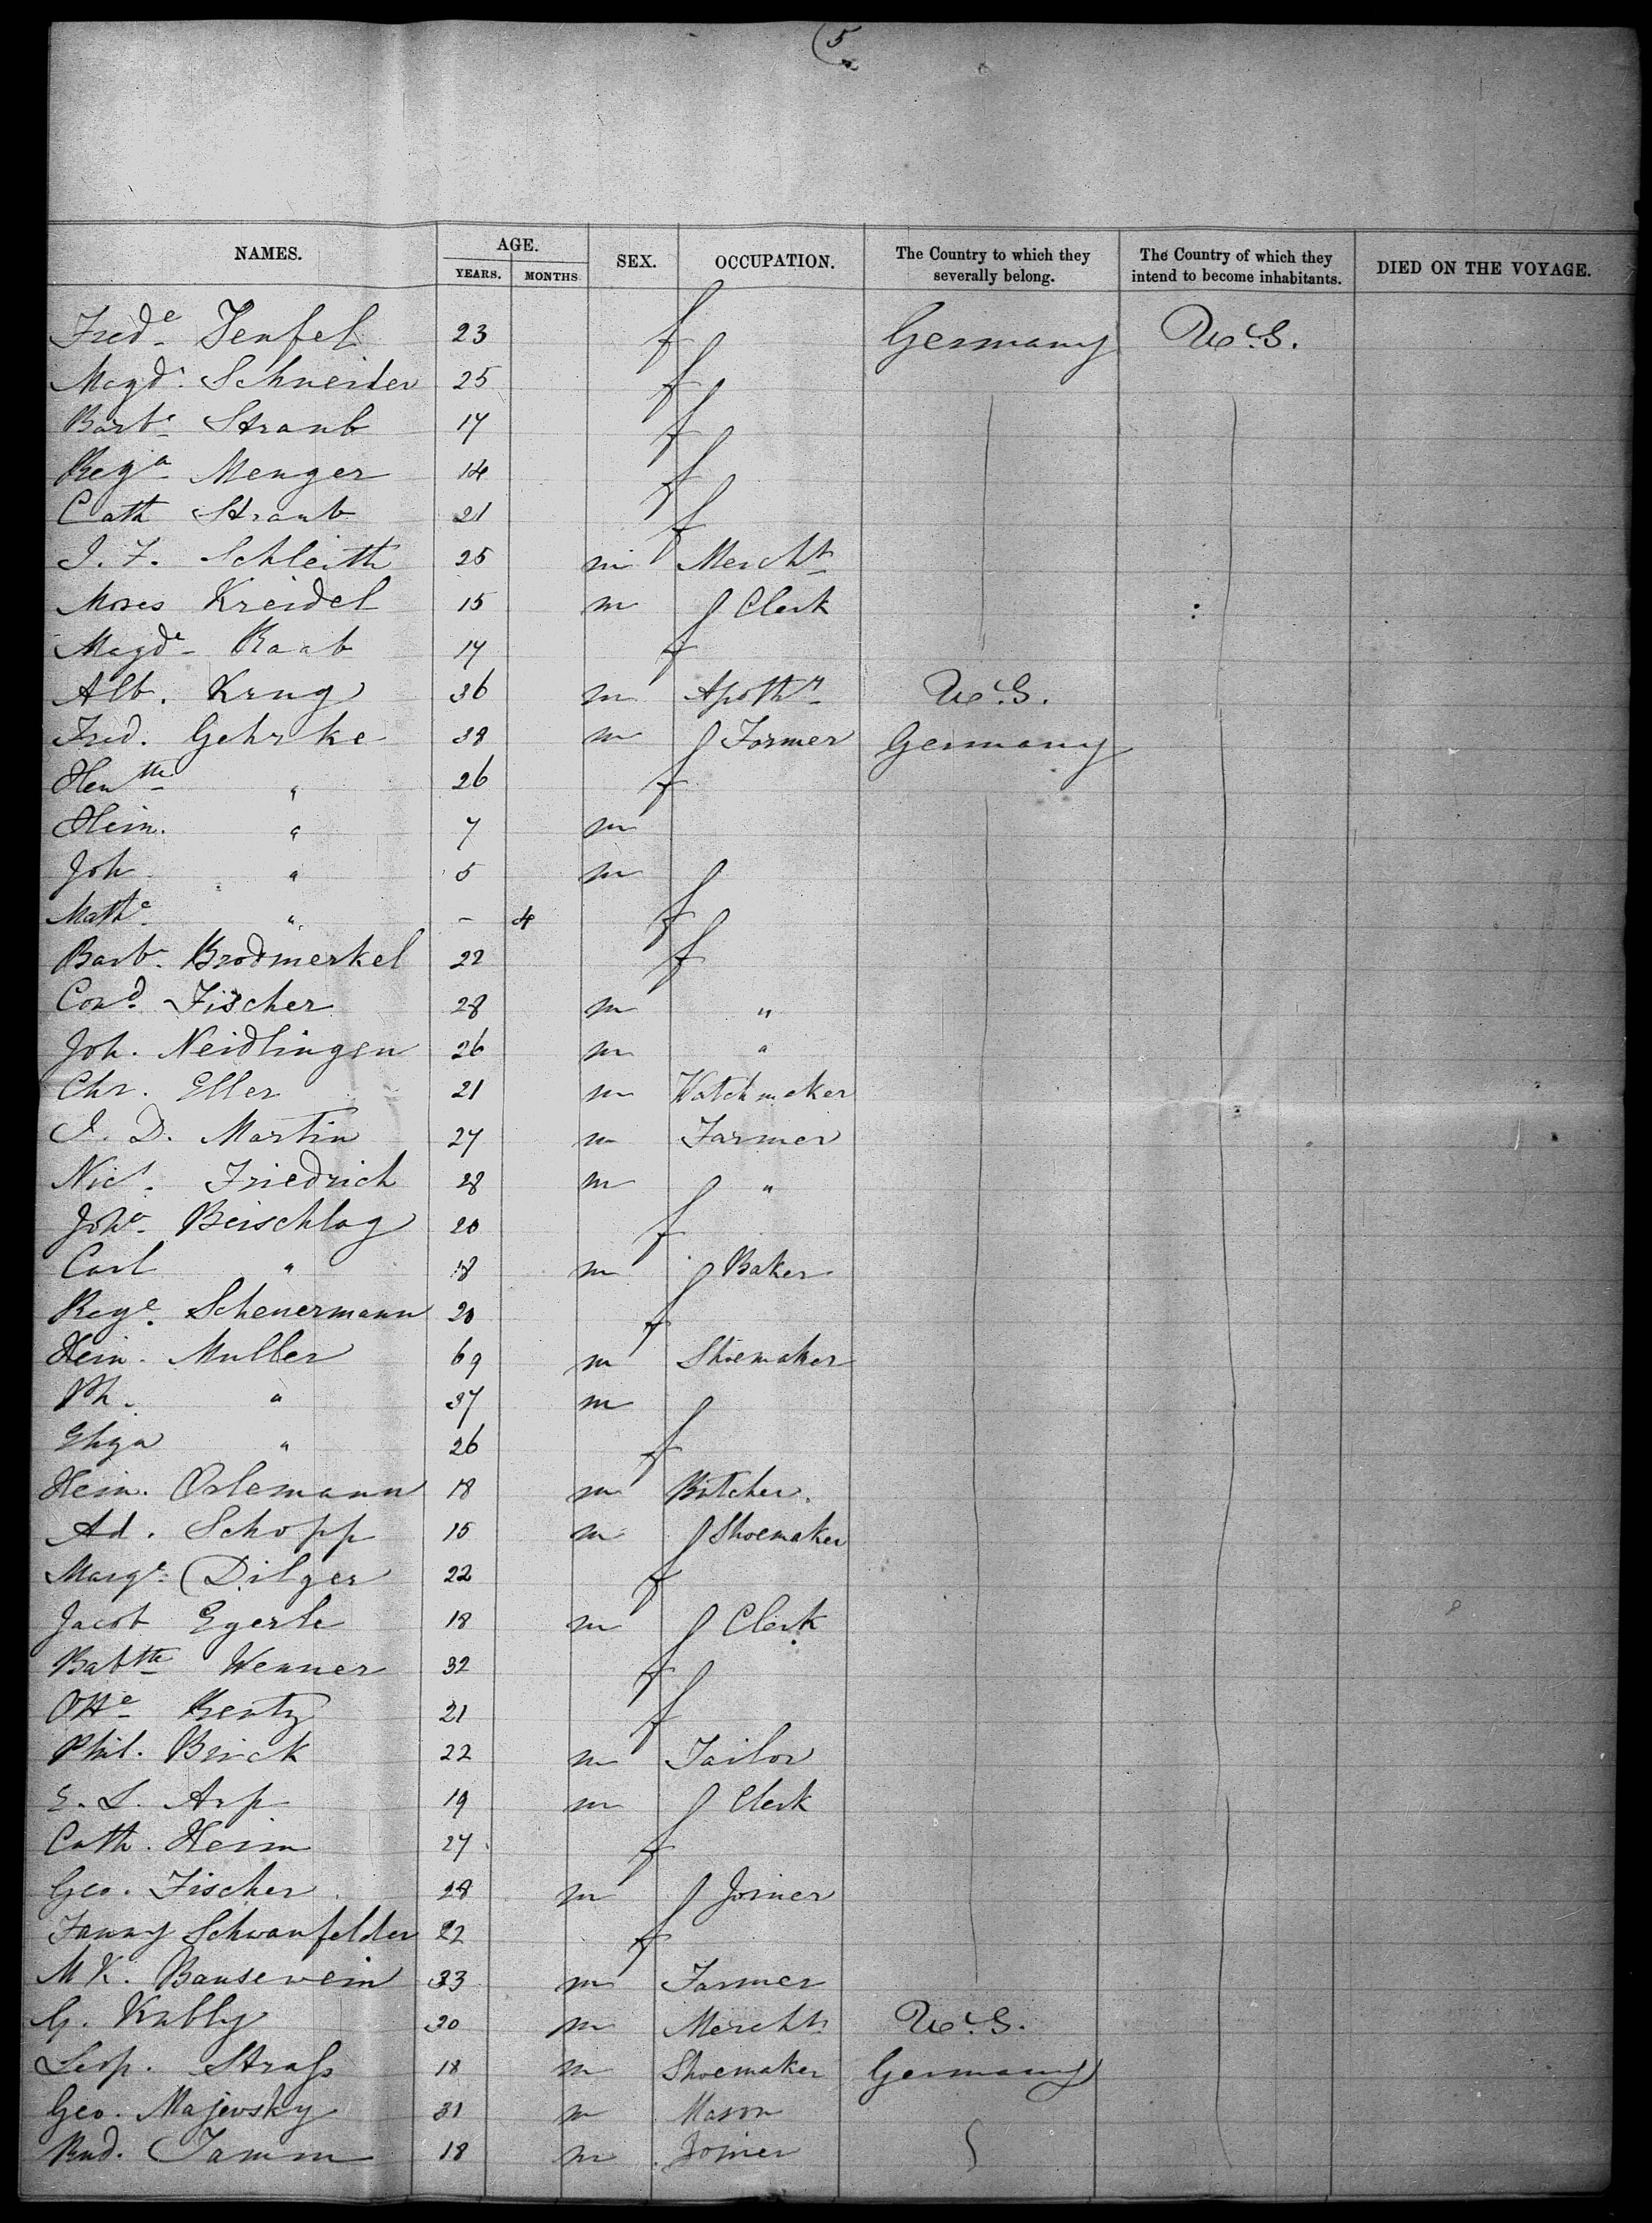 5
NAMES. AGE. SEX. OCCUPATION. The Country to which they severally belong. The Country of which they intend to become inhabitants. DIED ON THE VOYAGE.
YEARS. MONTHS
Fredᵉ Teufel 23 f Germany U.S.
Magdᵃ Schneider 25 f
Barbᵃ Straub 17 f
Regᵃ Menger 14 f
Cath Straub 21 f
J. F. Schleith 25 m Merchᵗ
Moses Kreidel 15 m Clerk
Magdᵃ Raab 17 f
Alb. Krug 36 m Apothʸ U.S.
Fred. Gehrke 38 m Farmer Germany
Henᵗᵗᵉ " 26 f
Hein. " 7 m
Joh " 5 m
Mathᵉ " - 4 f
Barbᵃ Brodmerkel 22 f
Conᵈ Fischer 28 m "
Joh. Neidlingen 26 m "
Chr. Eller 21 m Watchmaker
J. D. Martin 27 m Farmer
Nicˢ. Friedrich 28 m "
Johᵃ Beischlag 20 f
Carl " 18 m Baker
Regᵉ Scheuermann 20 f
Hein. Muller 69 m Shoemaker
Ph. " 37 m
Eliza " 26 f
Hein. Orlemann 18 m Butcher
Ad. Schopp 15 m Shoemaker
Margᵗ Dilger 22 f
Jacob Egerle 18 m Clerk
Babᵗᵗᵉ Wenner 32 f
Ottᵉ Bentz 21 f
Phil. Brick 22 m Tailor
E. L. Arp 19 m Clerk
Cath. Heim 27 f
Geo. Fischer 28 m Joiner
Fanny Schwanfelder 22 f
M K. Bausewein 33 m Farmer
G. Kubly 30 m Merchᵗ U.S.
Leop. Strafs 18 m Shoemaker Germany
Geo. Majewsky 31 m Mason
Rud. Tamm 18 m Joiner